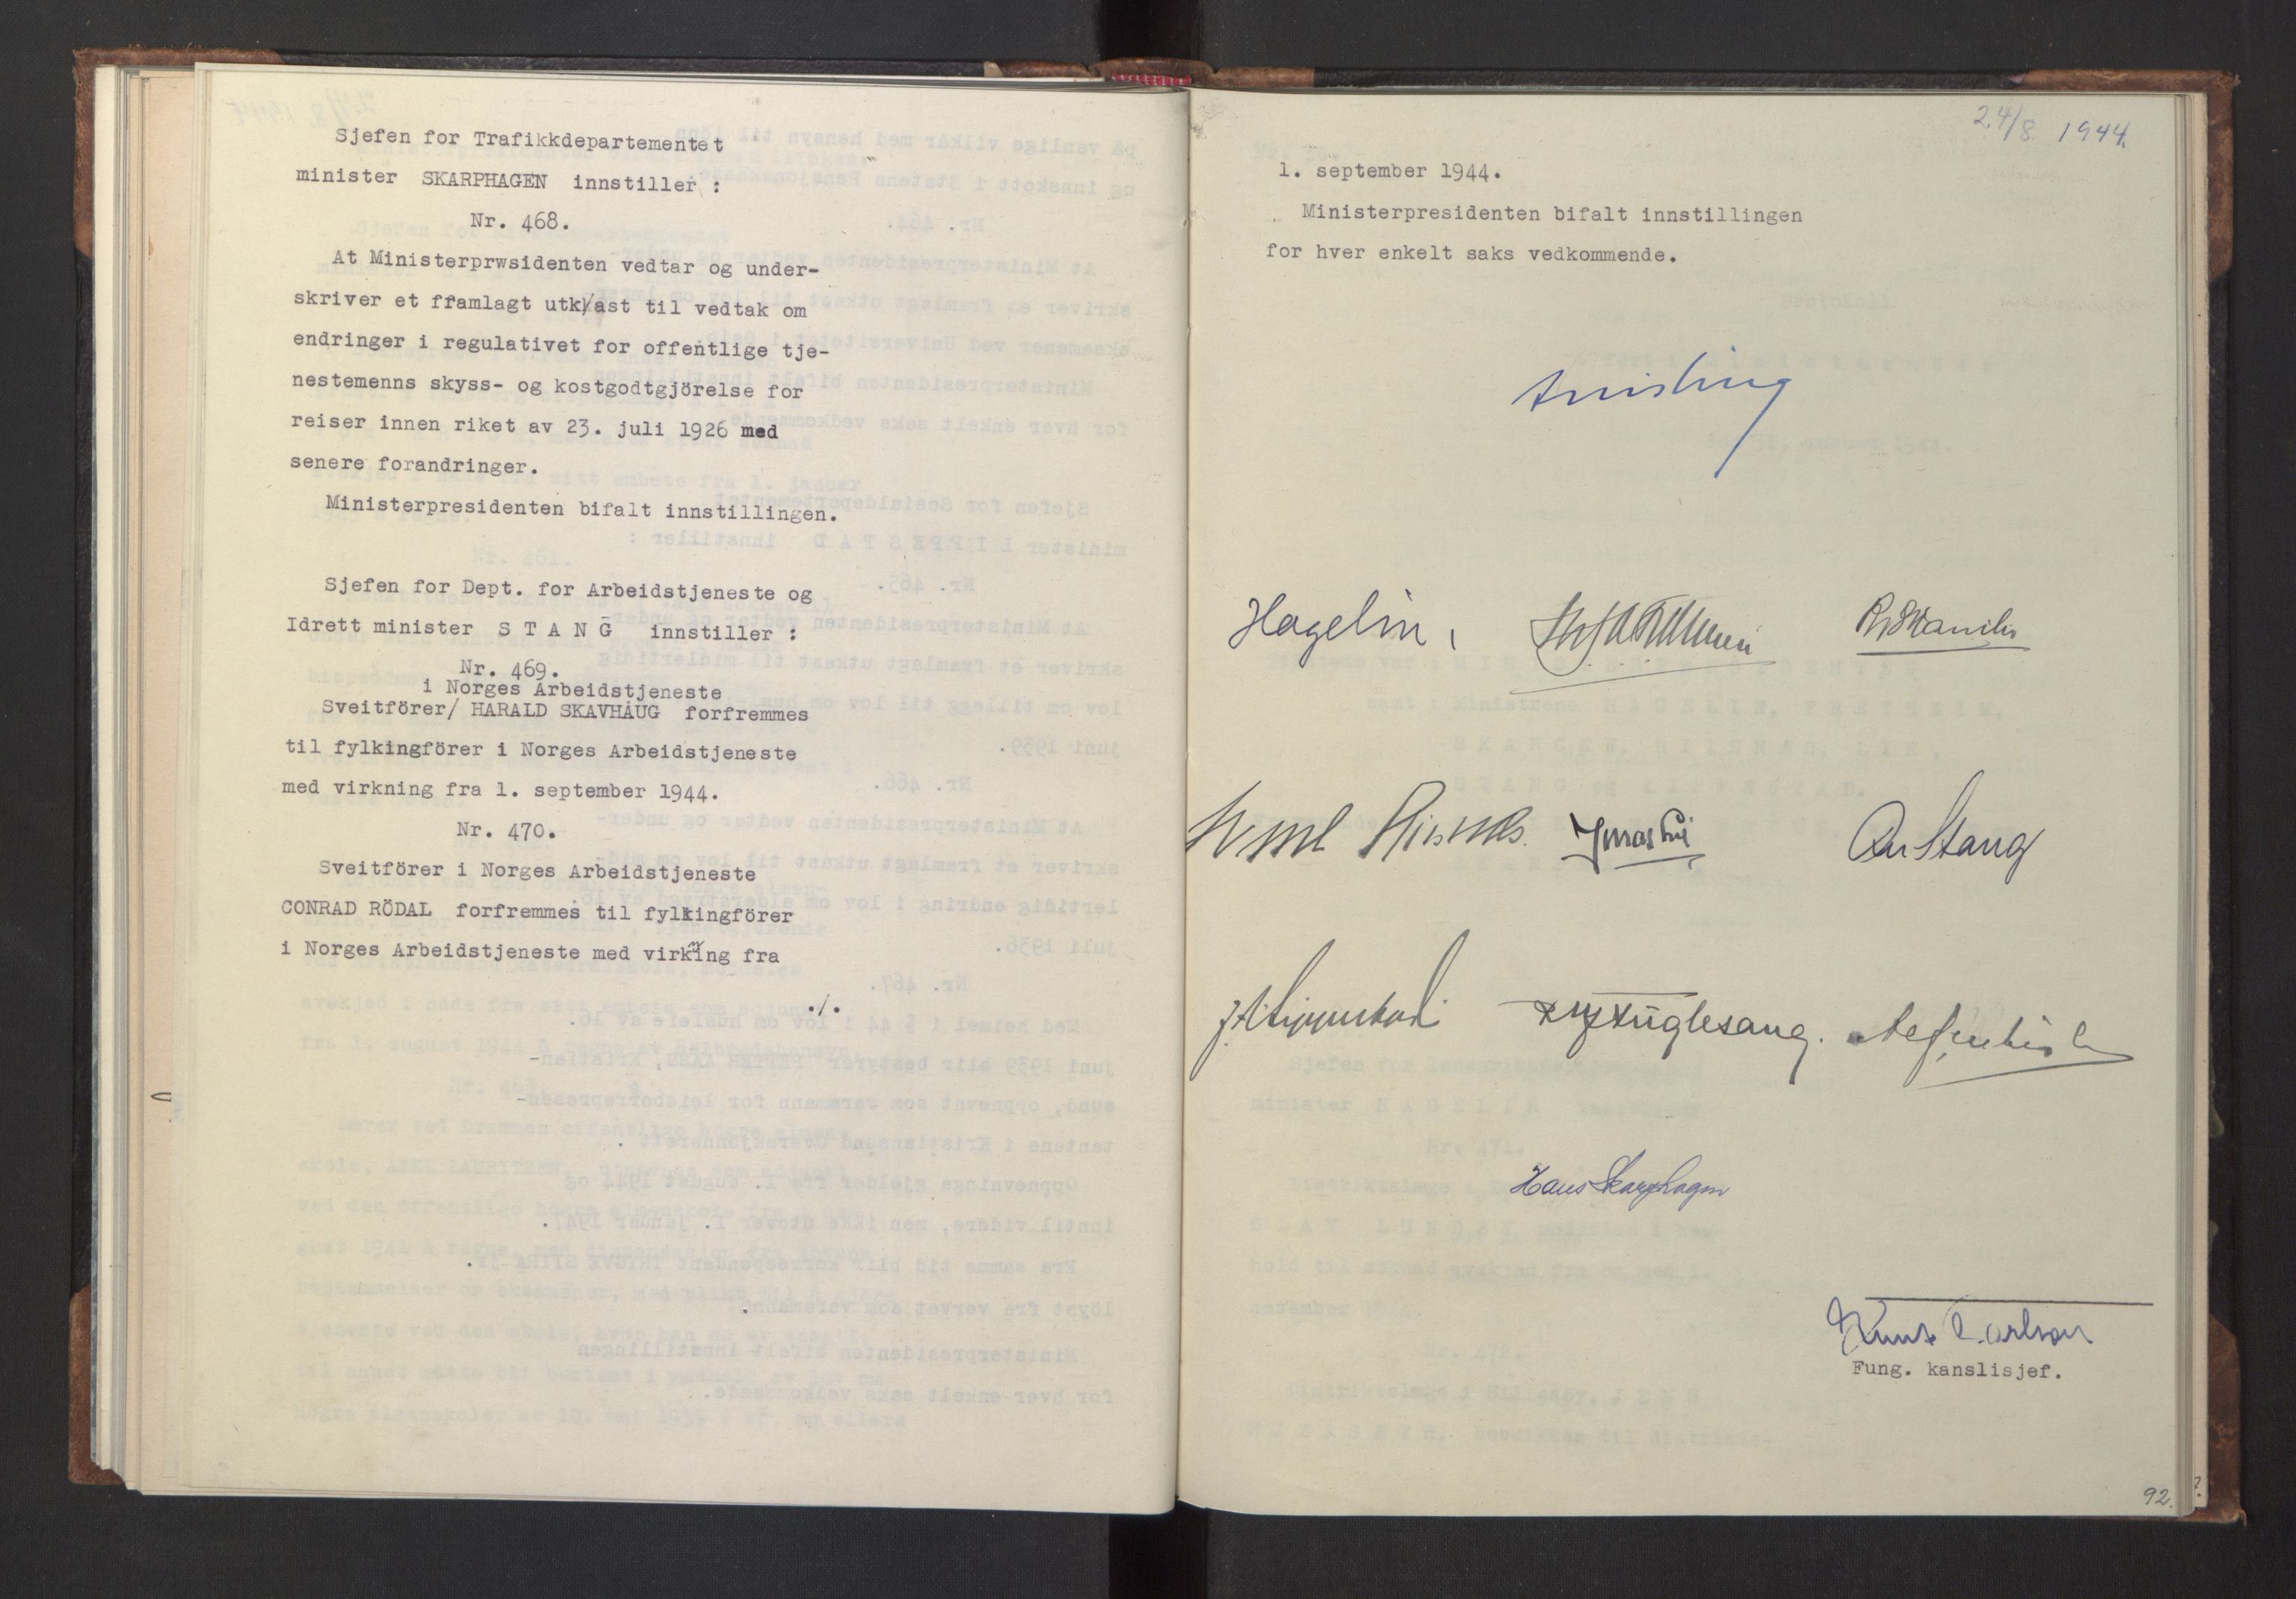 Sjefen for Trafikkdepartementet
minister SKARPHAGEN innstiller :
Nr. 468.
At Ministerprwsidenten vedtar og under-
skriver et framlagt utk/ast til vedtak om
endringer i regulativet for offentlige tje-
nestemenns skyss- og kostgodtgjörelse for
reiser innen riket av 23. juli 1926 med
senere forandringer.
Ministerpresidenten bifalt innstillingen.
Sjefen for Dept. for Arbeidstjeneste og
Idrett minister S T A N G innstiller :
Nr. 469.
i Norges Arbeidstjeneste
Sveitförer/ HARALD SKAVHAUG forfremmes
til fylkingförer i Norges Arbeidstjeneste
med virkning fra 1. september 1944.
Nr. 470.
Sveitförer i Norges Arbeidstjeneste
CONRAD RÖDAL forfremmes til fylkingförer
i Norges Arbeidstjeneste med virking fra
./.
24/8 1944.
1. september 1944.
Ministerpresidenten bifalt innstillingen
for hver enkelt saks vedkommende.
Quisling
Hagelin,
R. Skancke
Kjeld Stub Irgens
Stang
Fuglesang.
Hans Skarphagen
Knut Carlson
Fung. kanslisjef.
92.